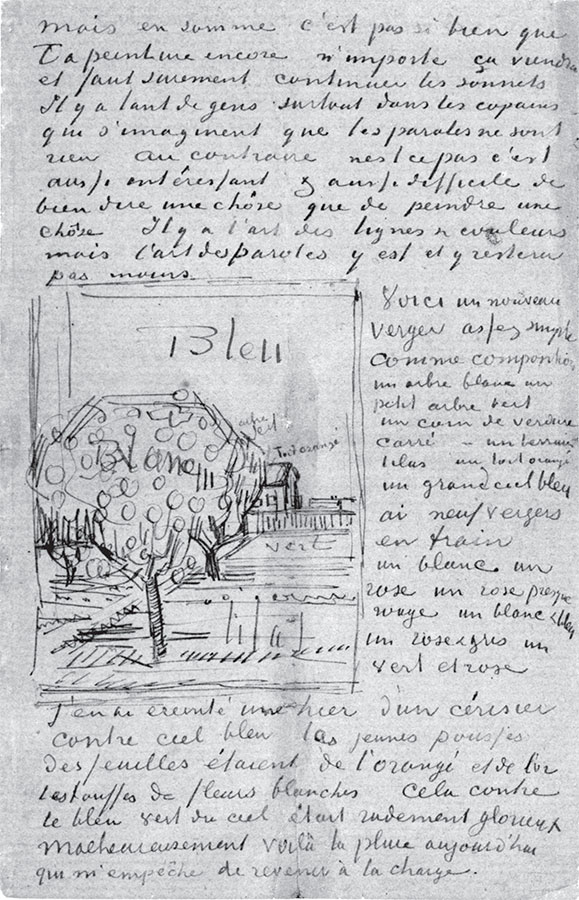 mais en somme c'est pas si bien que
Ta peinture encore n'importe ça viendra
et faut surement continuer les sonnets
Il y a tant de gens surtout dans les copains
qui s'imaginent que les paroles ne sont
rien au contraire n'est ce pas c'est
aussi intéressant & aussi difficile de
bien dire une chôse que de peindre une
chôse Il y a l'art des lignes & couleurs
mais l'art des paroles y est et y restera
pas moins
Voici un nouveau
verger assez simple
comme composition
un arbre blanc un
petit arbre vert
un coin de verdure
carré – un terrain
lilas un toit orangé
un grand ciel bleu
ai neuf vergers
en train
un blanc un
rose un rose presque
rouge un blanc & bleu
un rose & gris un
vert et rose
Bleu
arbre
vert
Blanc
Toit orangé
vert
lilas
J'en ai éreinté un hier d'un cérisier
contre ciel bleu les jeunes pousses
des feuilles étaient de l'orangé et de l'or
les touffes de fleurs blanches cela contre
le bleu vert du ciel était rudement glorieux
Malheureusement voilà la pluie aujourd'hui
qui m'empêche de revenir à la charge.